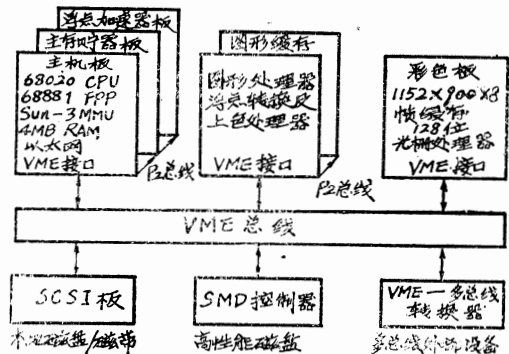 浮点加速器板
主存贮器板
主机板
68020 CPU
68881 FPP
Sun-3 MMU
4MB RAM
以太网
VME接口
P2总线
图形缓存
图形处理器
浮点转换及
上色处理器
VME接口
P2总线
彩色板
1152×900×8
帧缓存
128位
光栅处理器
VME接口
VME总线
SCSI板
本地磁盘/磁带
SMD控制器
高性能磁盘
VME—多总线
转换器
多总线外部设备